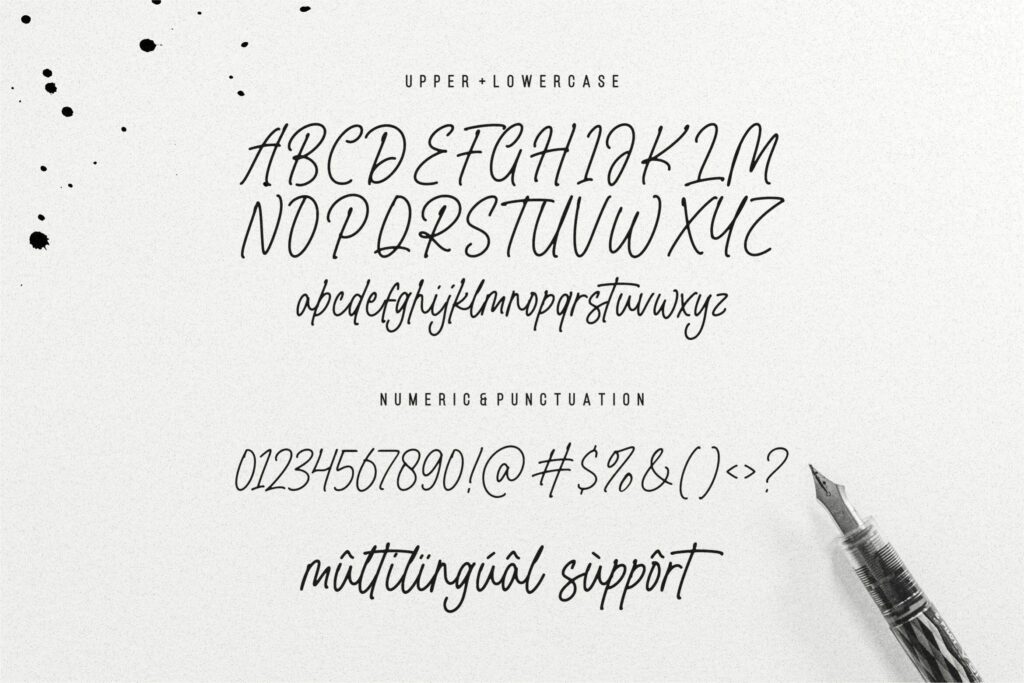 UPPER + LOWERCASE
ABCDEFGHIJKLM
NOPQRSTUVWXYZ
abcdefghijklmnopqrstuvwxyz
NUMERIC & PUNCTUATION
01234567890!@#$%&()<>?
mûltilïngúâl sùppôrt